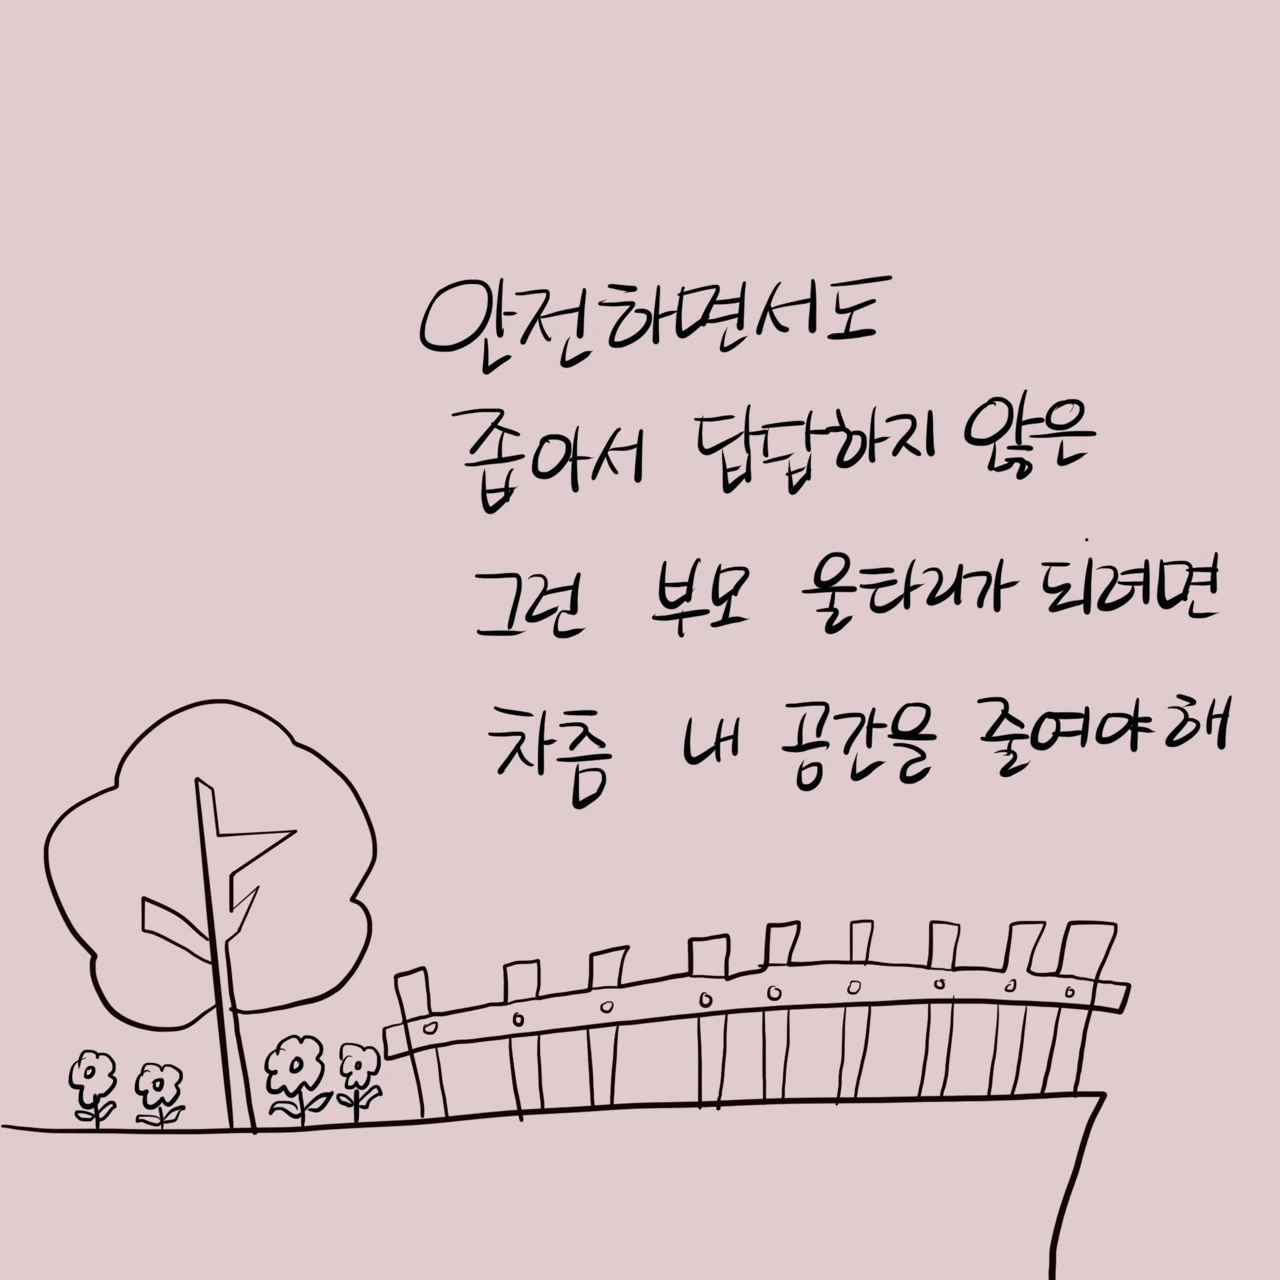 안전하면서도
좁아서 답답하지 않은
그런 부모 울타리가 되려면
차츰 내 공간을 줄여야 해